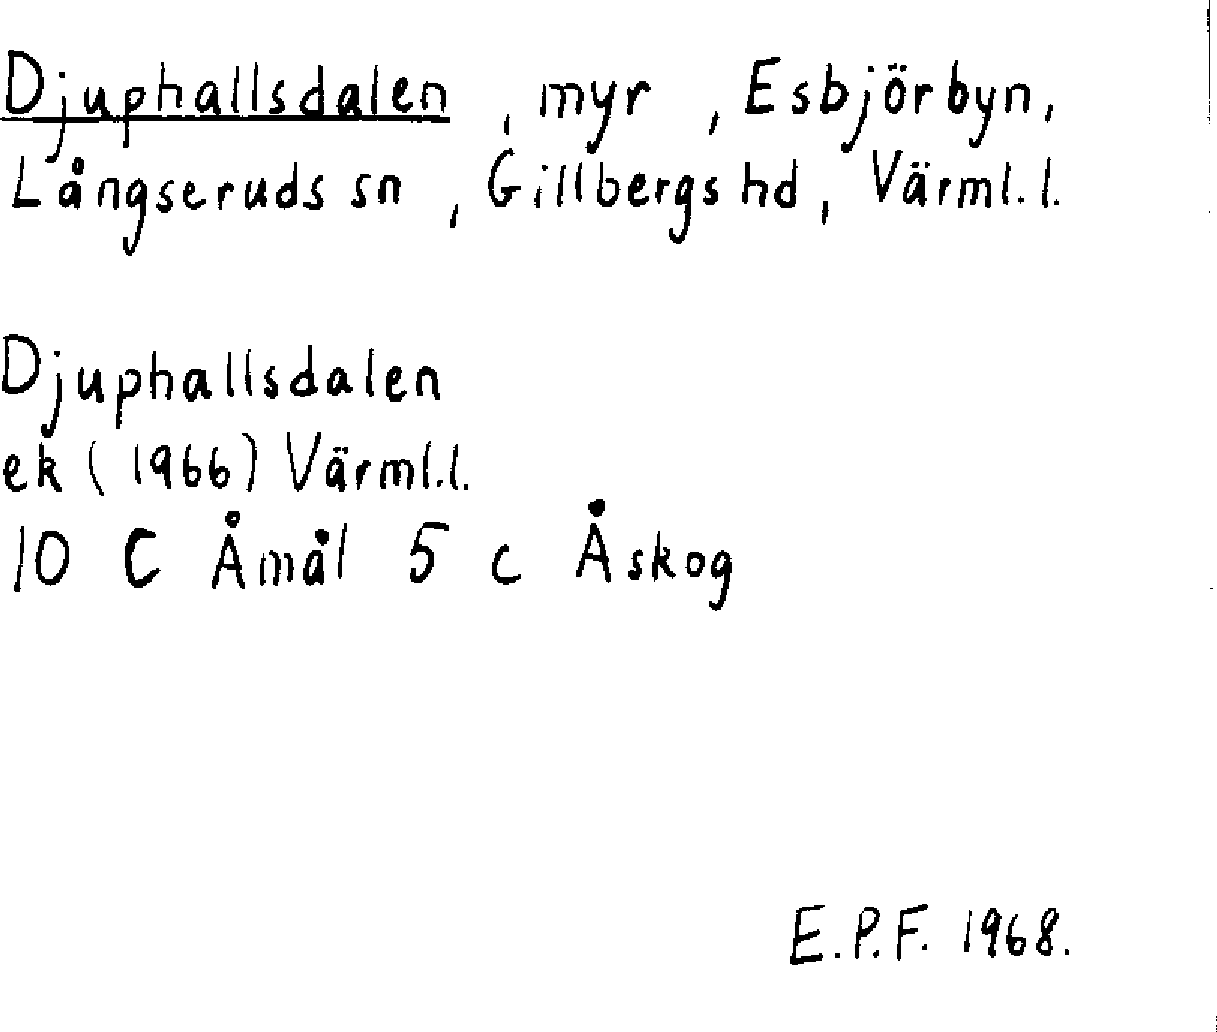 Djuphallsdalen, myr, Esbjörbyn,
Långseruds sn, Gillbergs hd, Värml. l.
Djuphallsdalen
ek (1966) Värml.l.
10 C Åmål 5 c Åskog
E.P.F. 1968.